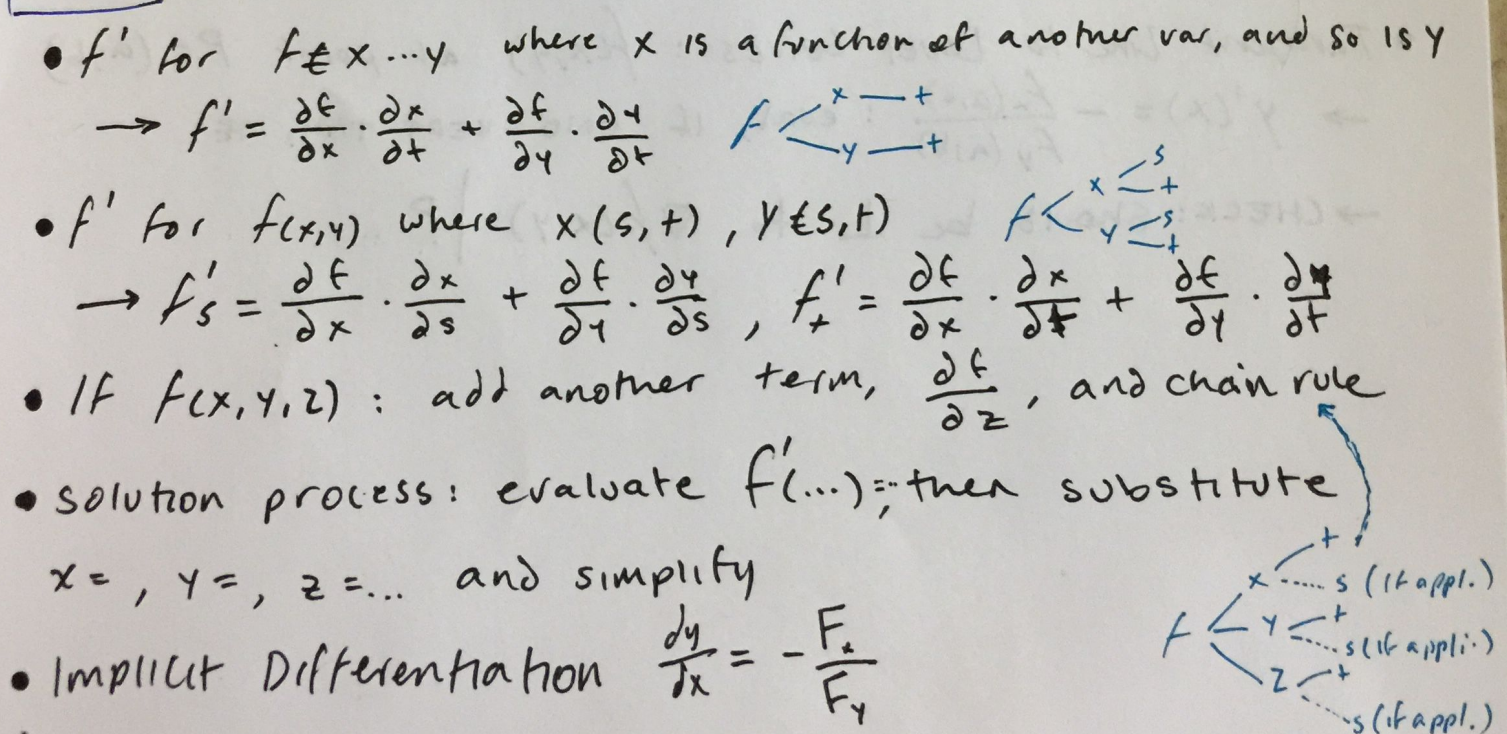 • f' for f(x...y where x is a function of another var, and so is y
→ f' = ∂f/∂x · ∂x/∂t + ∂f/∂y · ∂y/∂t f x t y t
• f' for f(x,y) where x(s,t), y(s,t) f x s t y s t
→ f's = ∂f/∂x · ∂x/∂s + ∂f/∂y · ∂y/∂s , f't = ∂f/∂x · ∂x/∂t + ∂f/∂y · ∂y/∂t
• If f(x,y,z): add another term, ∂f/∂z, and chain rule
• solution process: evaluate f'(...)=..., then substitute
x= , y= , z=... and simplify
• Implicit Differentiation dy/dx = - Fx/Fy
f x t s (if appl.)
y t s (if appli.)
z t s (if appl.)